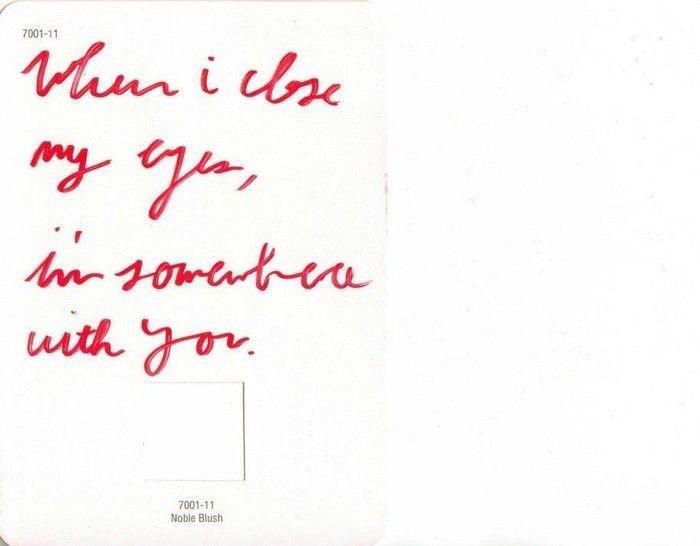 7001-11
When i close
my eyes,
i'm somewhere
with you.
7001-11
Noble Blush